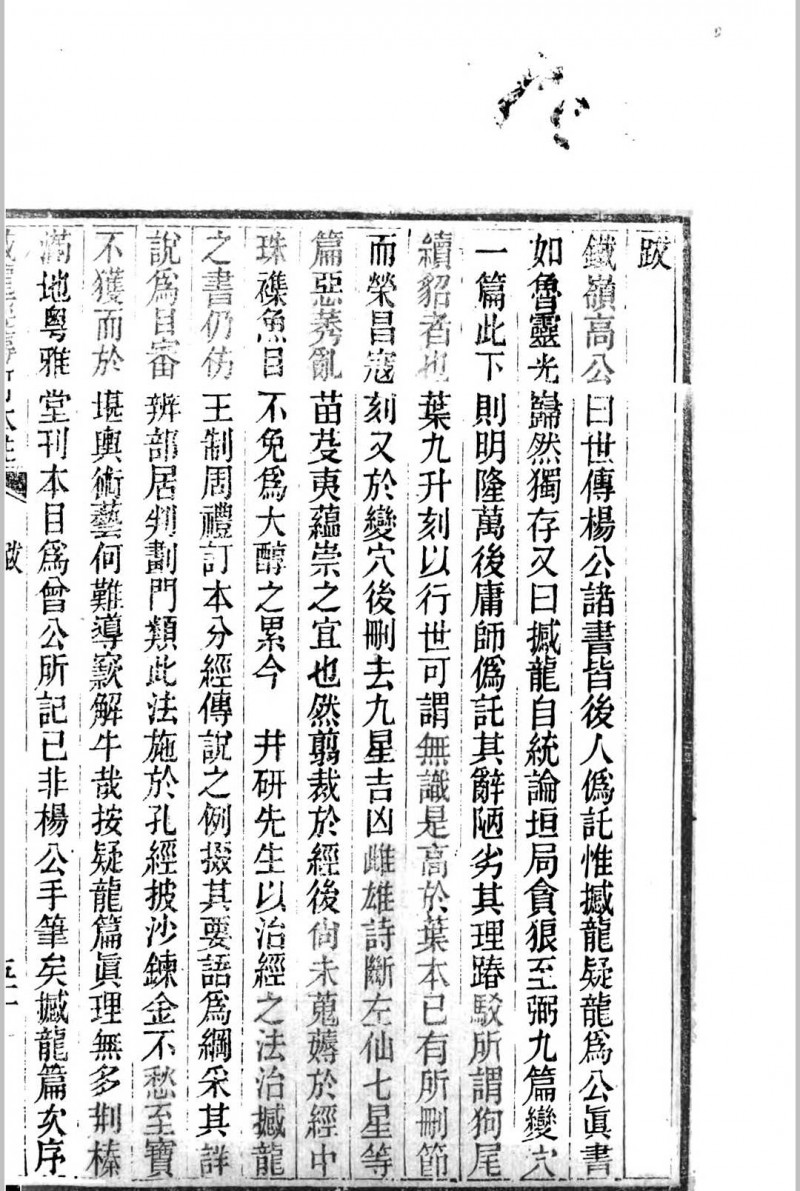 跋
鐵嶺高公曰世傳楊公諸書皆後人僞託惟撼龍疑龍爲公眞書
如魯靈光巋然獨存又曰撼龍自統論垣局貪狼至弼九篇變穴
一篇此下則明隆萬後庸師僞託其辭陋劣其理踳駁所謂狗尾
續貂者也葉九升刻以行世可謂無識是高於葉本已有所刪節
而榮昌寇刻又於變穴後刪去九星吉凶雌雄詩斷左仙七星等
篇惡莠亂苗芟夷蘊崇之宜也然翦裁於經後尙未蒐薅於經中
珠襍魚目不免爲大醇之累今　井研先生以治經之法治撼龍
之書仍仿王制周禮訂本分經傳說之例掇其要語爲綱采其詳
說爲目審辨部居判劃門類此法施於孔經披沙鍊金不愁至寶
不獲而於堪輿術藝何難導窾解牛哉按疑龍篇眞理無多荆榛
滿地粵雅堂刊本目爲曾公所記已非楊公手筆矣撼龍篇次序
跋